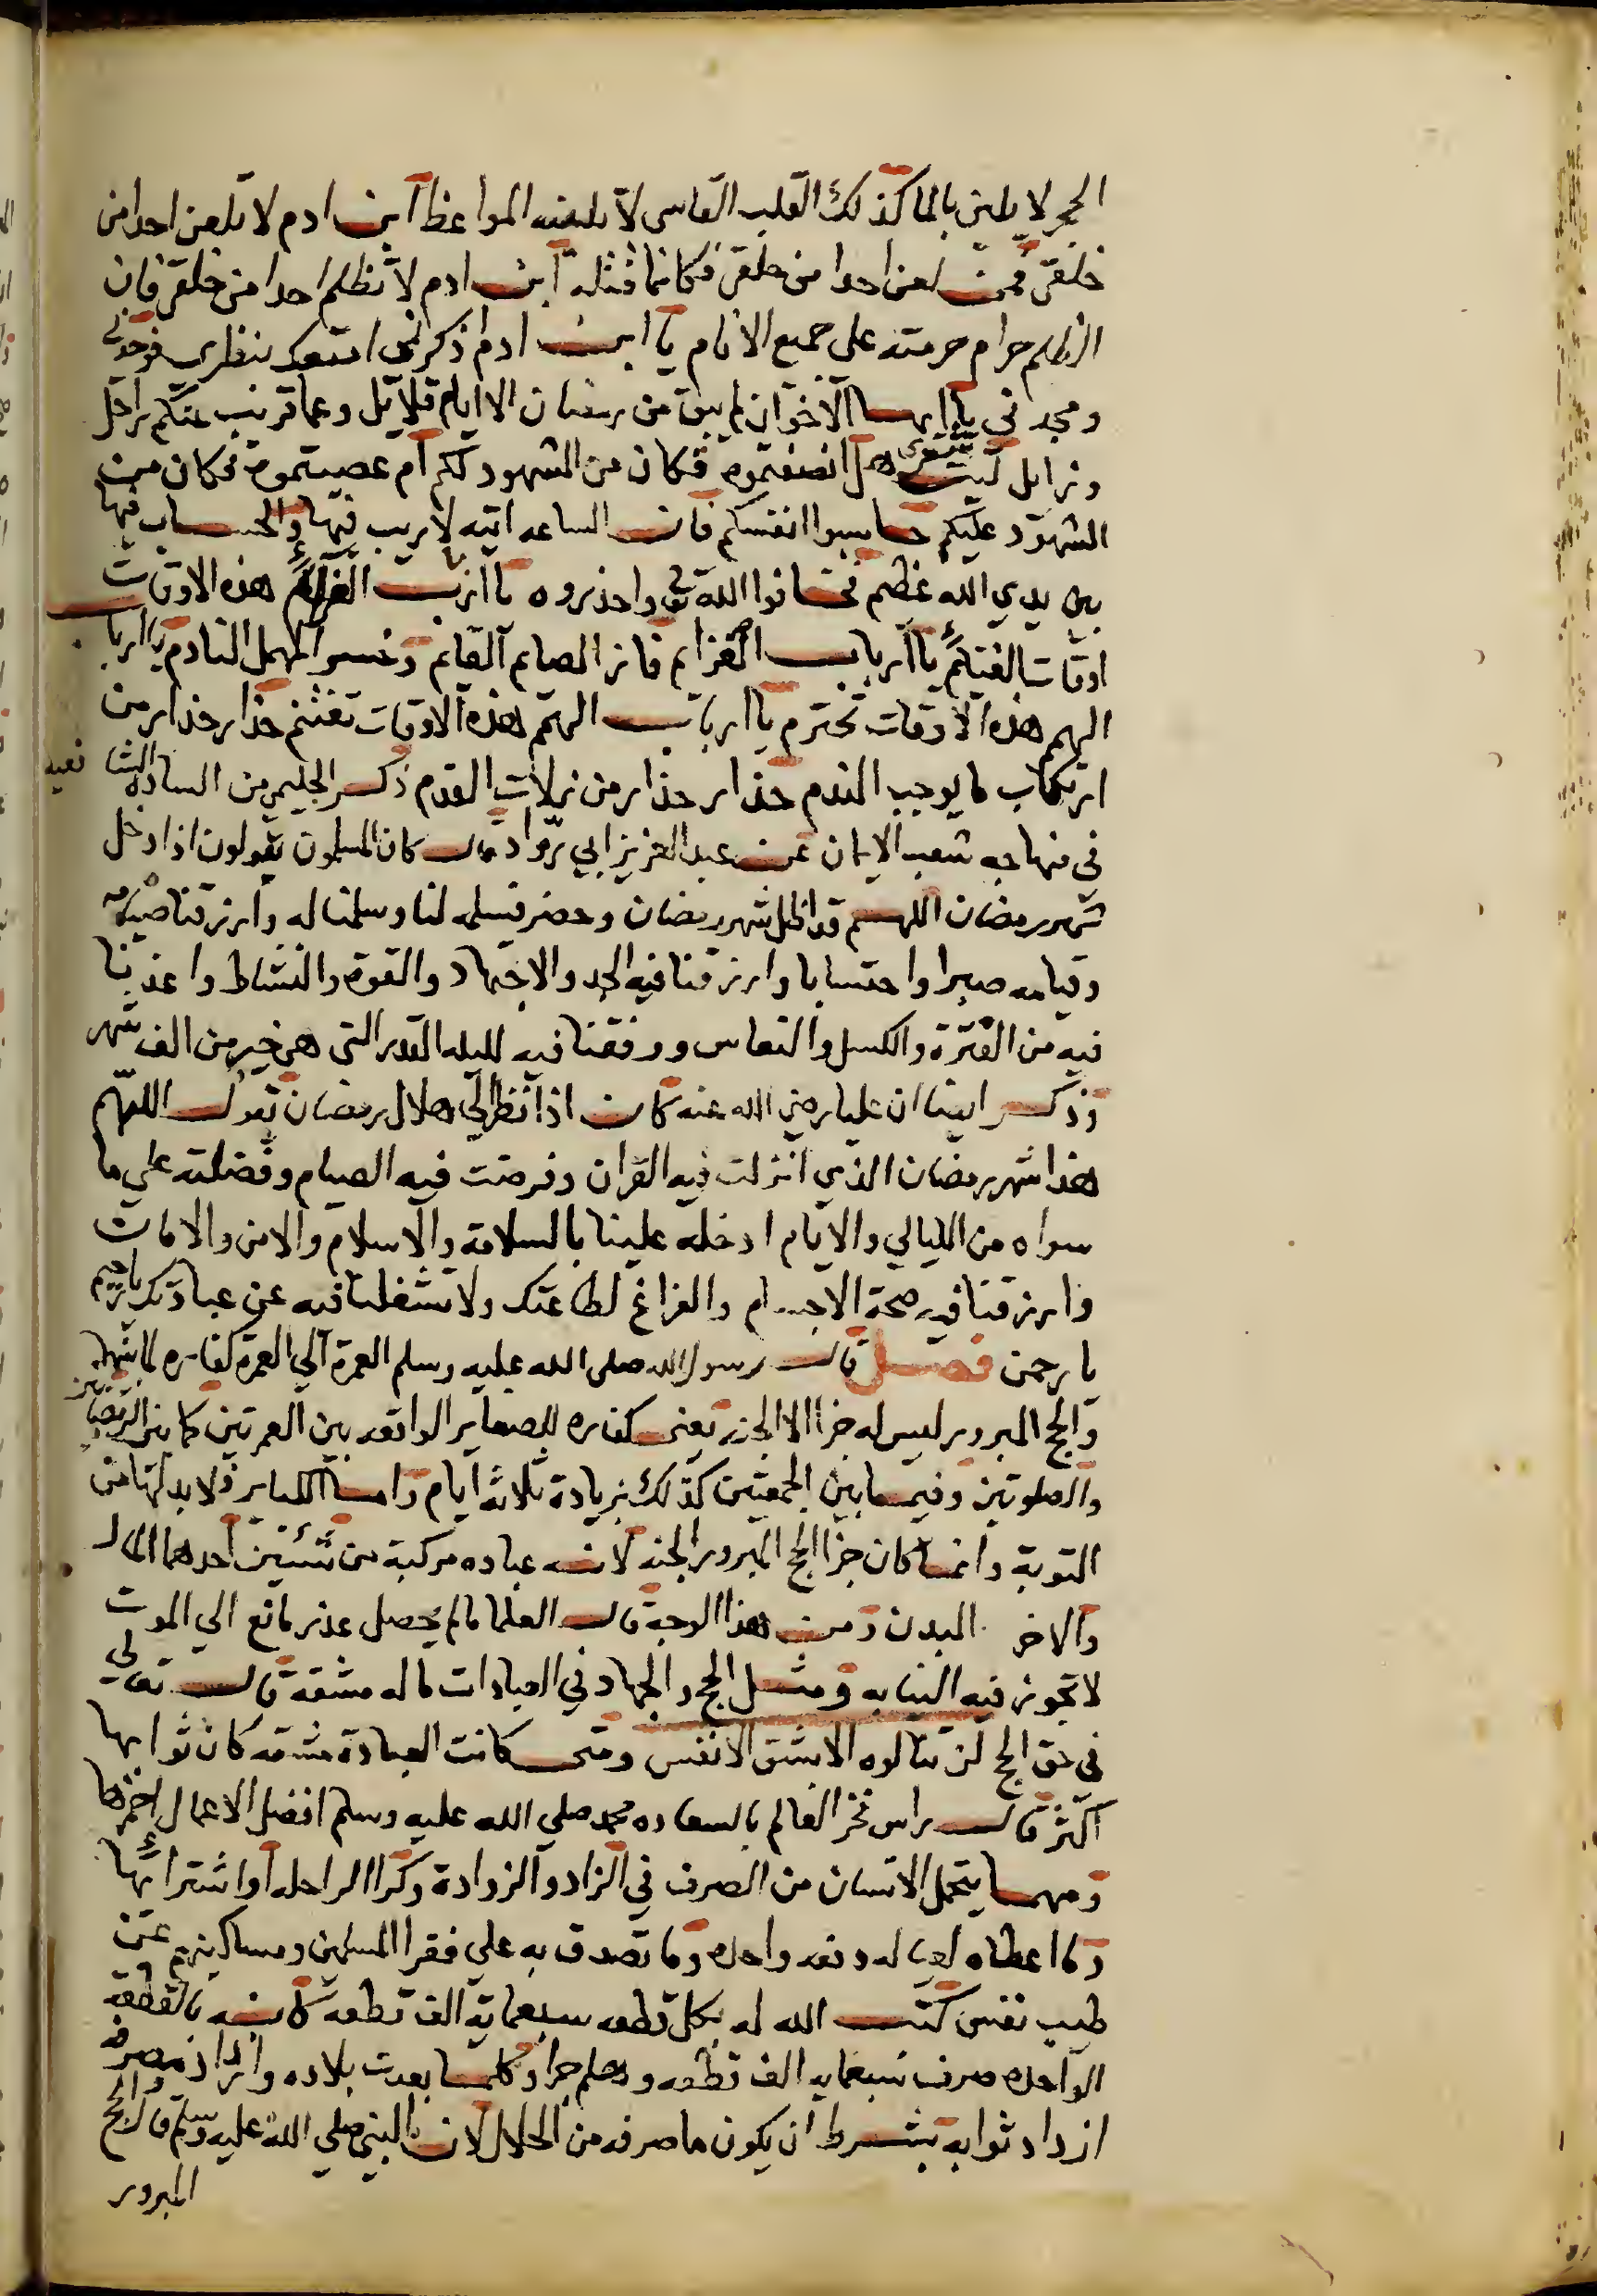 الحجر لا يلين بالما كذلك القلب القاسي لا تليفنه المواعظ ابن ادم لا تلعن احدا من
خلقي فمن لعن احدا من خلقي فكانما قتله ابن ادم لا تظلم احدا من خلقي فان
الظلم حرام حرمته علي جميع الانام يا ابن ادم اذكرني بنظري فوحدني
ومجدني يا ايها الاخوان لم يبق من رمضان الا ايام قلايل وعما قريب عنكم راحل
وزايل ليت شعري هل انصفتموه فكان من الشهود لكم ام عصيتموه فكان من
الشهود عليكم حاسبوا انفسكم فان الساعه اتيه لا ريب فيها والحساب فيها
بين يدي الله عظيم فخافوا الله تعالى واحذروه يا ارباب هذه الاوقات
اوقات الغنائم يا ارباب العزايم فاز الصايم القايم وخسر المهمل النادم يا ارباب
الهمم هذه الاوقات تحترم يا ارباب الهمم هذه الاوقات تغتنم حذار حذار من
ارتكاب ما يوجب الندم حذار حذار من زلات القدم ذكر الحليمي من السادة الشافعيه
في منهاجه شعب الايمان عن عبد العزيز ابي رواد قال كان المسلمون يقولون اذا دخل
شهر رمضان اللهم قد اظل شهر رمضان وحضر فسلمه لنا وسلمنا له وارزقنا صيامه
وقيامه صبرا واحتسابا وارزقنا فيه الجد والاجتهاد والقوة والنشاط واعذنا
فيه من الفترة والكسل والنعاس ووفقنا فيه لليله القدر التي هي خير من الف شهر
وذكر ايضا ان عليا رضي الله عنه كان اذا نظر الي هلال رمضان يقول اللهم
هذا شهر رمضان الذي انزلت فيه القران وفرضت فيه الصيام وفضلته علي ما
سواه من الليالي والايام ادخله علينا بالسلامة والاسلام والامن والامان
وارزقنا فيه صحة الاجسام والفراغ لطاعتك ولا تشغلنا فيه عن عبادتك يا رحيم
يا رحمن فصل قال رسول الله صلى الله عليه وسلم العمرة الي العمرة كفاره لما بينهما
والحج المبرور ليس له جزا الا الجنه يعني كفاره للصغاير الواقعه بين العمرتين كما بين الرمضانين
والصلوتين وفيما بين الجمعتين كذلك بزيادة ثلاثه ايام واما الكباير فلا بد لها من
التوبة وانما كان جزا الحج المبرور الجنه لانه عباده مركبة من شئين احدهما المال
والاخر البدن ومن هذا الوجه قال العلما ما لم يحصل عذر مانع الي الموت
لا تجوز فيه النيابه ومثل الحج والجهاد في العبادات ما له مشقه قال تعالي
في حق الحج لن تنالوه الا بشق الانفس ومتى كانت العبادة مشقه كان ثوابها
اكثر قال راس فخر العالم بالسعاده محمد صلي الله عليه وسلم افضل الاعمال احمزها
ومهما يتحمل الانسان من الصرف في الزاد والزوادة وكرا الراحله او اشترائها
وما اعطاه لعياله دفعه واحده وما تصدق به علي فقرا المسلمين ومساكينهم عن
طيب نفس كتب الله له بكل قطعه سبعماية الف قطعه كانه بالقطعه
الواحده صرف سبعمايه الف قطعه وهلم جرا وكلما بعدت بلاده وازداد مصرفه
ازداد ثوابه بشرط ان يكون ما صرفه من الحلال لان النبي صلي الله عليه وسلم قال والحج
المبرور